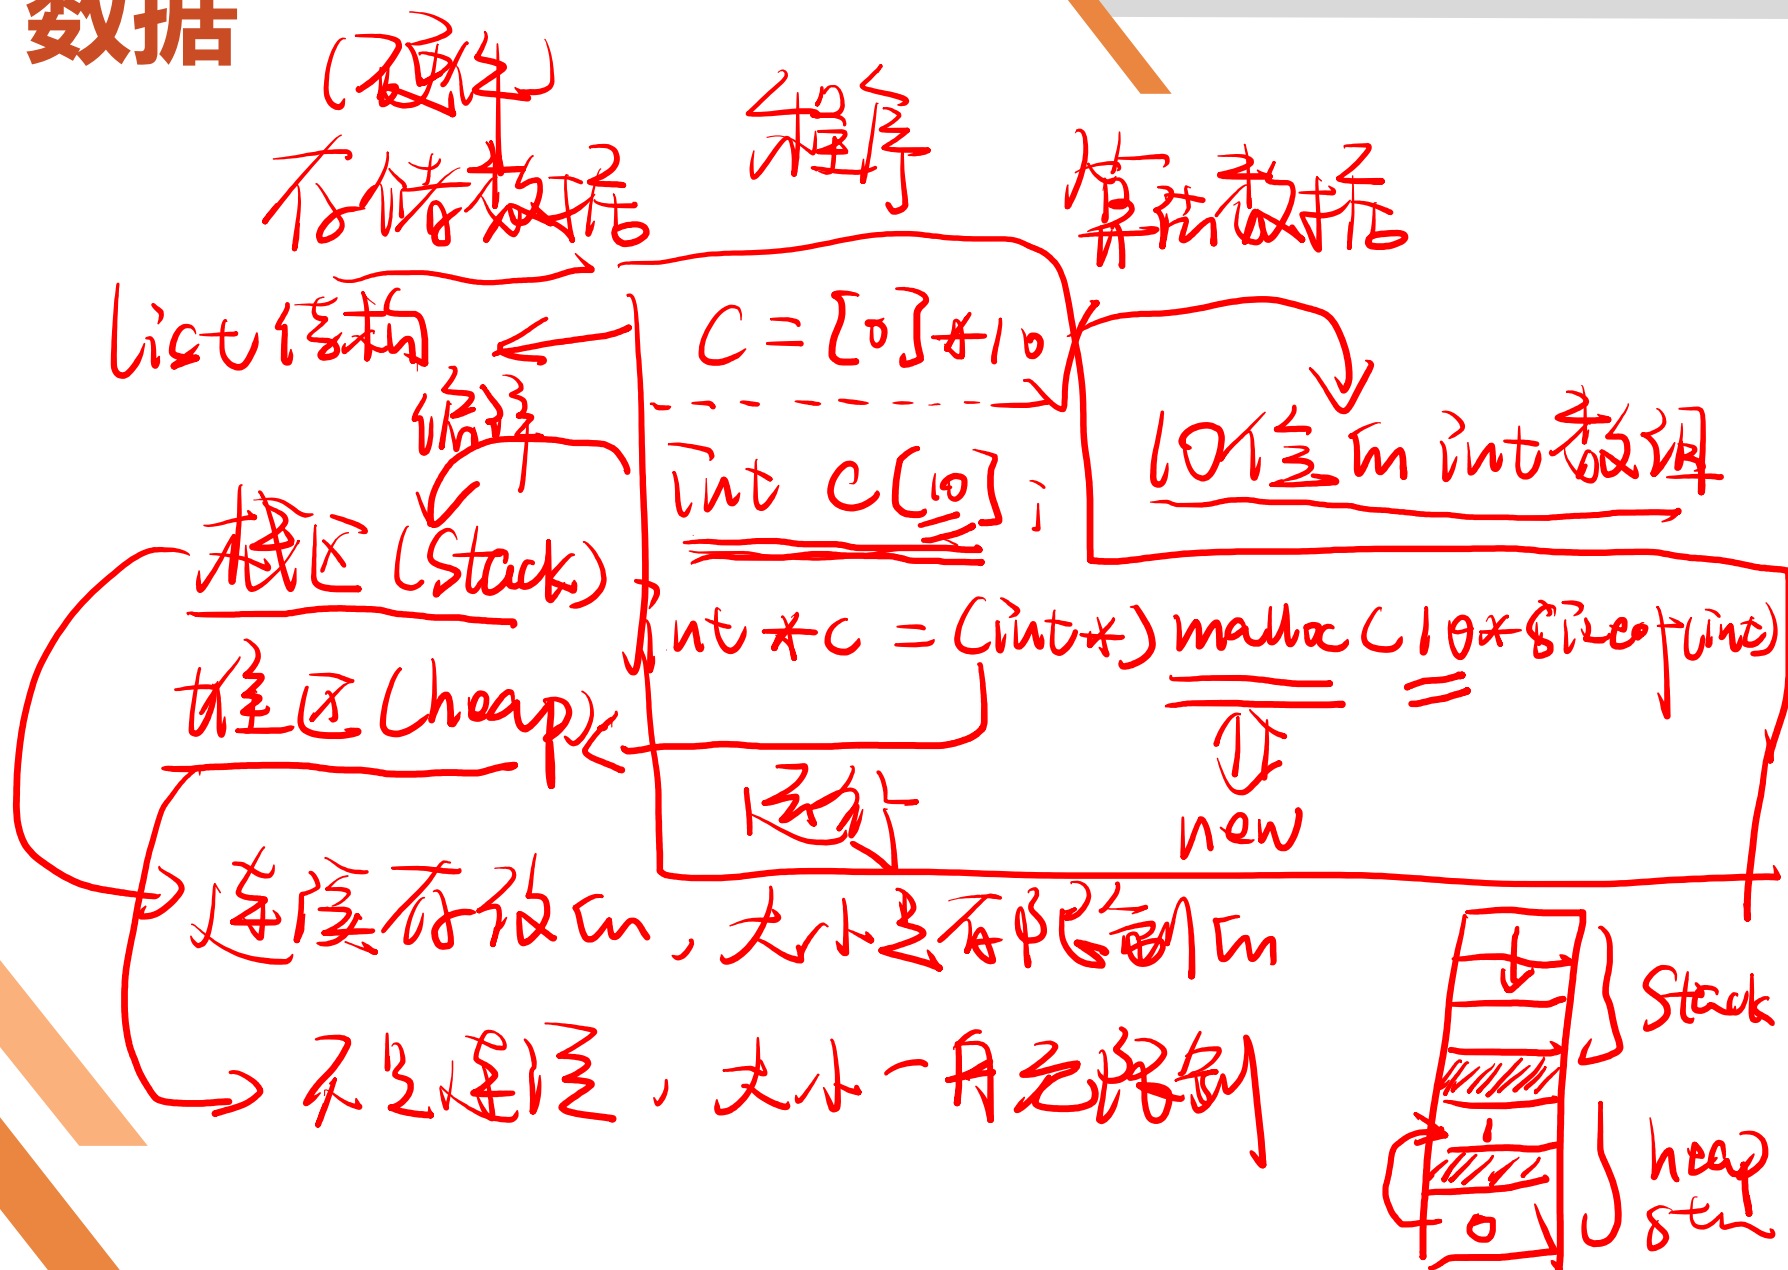 数据
(硬件)
存储数据
程序
算法数据
List结构
C = [0]*10
编译
int C[10];
10倍的int数组
栈区(Stack)
int *C = (int*) malloc(10*sizeof(int)
堆区(heap)
运行
new
连续存放的,大小是有限制的
不是连续,大小一般无限制
Stack
1
heap
0